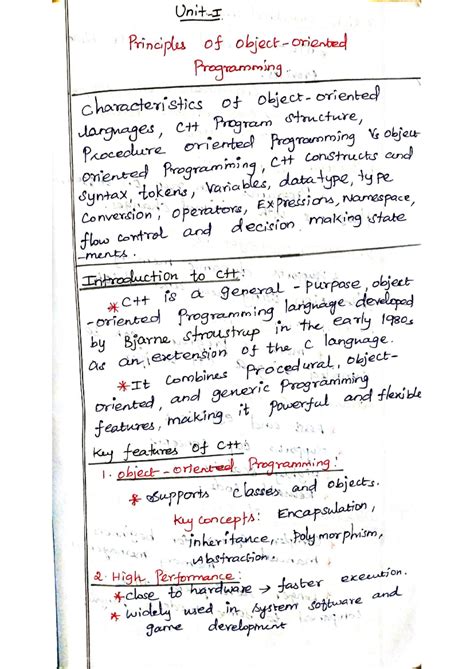 Unit-I
Principles of object-oriented
Programming.
Characteristics of object-oriented
languages, C++ Program structure,
Procedure oriented Programming Vs object
oriented Programming, C++ constructs and
syntax, tokens, variables, datatype, type
conversion, operators, Expressions, Namespace,
flow control and decision making state
-ments.
Introduction to C++:
* C++ is a general-purpose, object
-oriented Programming language developed
by Bjarne Stroustrup in the early 1980s
as an extension of the C language.
* It combines Procedural, object-
oriented, and generic Programming
features, making it Powerful and flexible
Key features of C++:
1. object-oriented Programming:
* Supports classes and objects.
Key concepts: Encapsulation,
inheritance, Polymorphism,
Abstraction.
2. High Performance:
* close to hardware → faster execution.
* widely used in system software and
game development